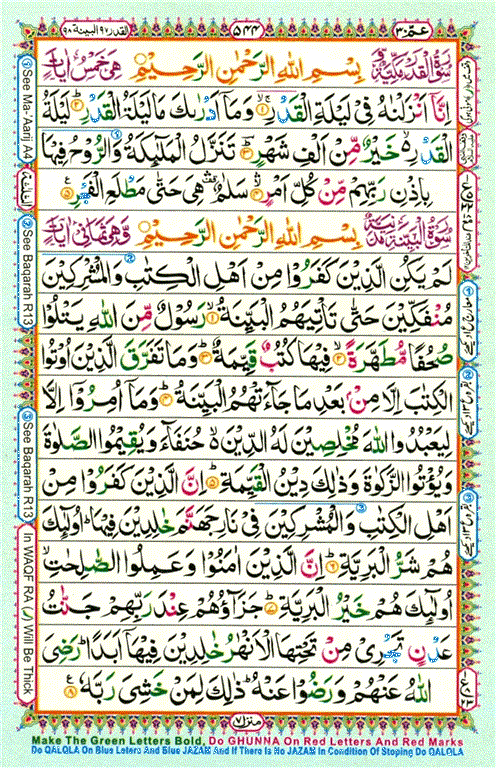 عمّ ٣٠ ٥٤٤ القدر ٩٧ البينة ٩٨
سورة القدر مكية بِسْمِ اللهِ الرَّحْمٰنِ الرَّحِيْمِ هي خمس آيات
اِنَّاۤ اَنْزَلْنٰهُ فِيْ لَيْلَةِ الْقَدْرِ ۚ وَمَاۤ اَدْرٰىكَ مَا لَيْلَةُ الْقَدْرِ ؕ لَيْلَةُ
الْقَدْرِ ۙ خَيْرٌ مِّنْ اَلْفِ شَهْرٍ ؕ تَنَزَّلُ الْمَلٰٓئِكَةُ وَالرُّوْحُ فِيْهَا
بِاِذْنِ رَبِّهِمْ مِّنْ كُلِّ اَمْرٍ ۙ سَلٰمٌ ۛ هِيَ حَتّٰى مَطْلَعِ الْفَجْرِ ٥
سورة البينة مدنية بِسْمِ اللهِ الرَّحْمٰنِ الرَّحِيْمِ وهي ثماني آيات
لَمْ يَكُنِ الَّذِيْنَ كَفَرُوْا مِنْ اَهْلِ الْكِتٰبِ وَالْمُشْرِكِيْنَ
مُنْفَكِّيْنَ حَتّٰى تَاْتِيَهُمُ الْبَيِّنَةُ ۙ رَسُوْلٌ مِّنَ اللهِ يَتْلُوْا
صُحُفًا مُّطَهَّرَةً ۙ فِيْهَا كُتُبٌ قَيِّمَةٌ ؕ وَمَا تَفَرَّقَ الَّذِيْنَ اُوْتُوا
الْكِتٰبَ اِلَّا مِنْۢ بَعْدِ مَا جَآءَتْهُمُ الْبَيِّنَةُ ؕ وَمَاۤ اُمِرُوْۤا اِلَّا
لِيَعْبُدُوا اللهَ مُخْلِصِيْنَ لَهُ الدِّيْنَ ۙ حُنَفَآءَ وَيُقِيْمُوا الصَّلٰوةَ
وَيُؤْتُوا الزَّكٰوةَ وَذٰلِكَ دِيْنُ الْقَيِّمَةِ ؕ اِنَّ الَّذِيْنَ كَفَرُوْا مِنْ
اَهْلِ الْكِتٰبِ وَالْمُشْرِكِيْنَ فِيْ نَارِ جَهَنَّمَ خٰلِدِيْنَ فِيْهَا ؕ اُولٰٓئِكَ
هُمْ شَرُّ الْبَرِيَّةِ ؕ اِنَّ الَّذِيْنَ اٰمَنُوْا وَعَمِلُوا الصّٰلِحٰتِ ۙ
اُولٰٓئِكَ هُمْ خَيْرُ الْبَرِيَّةِ ؕ جَزَآؤُهُمْ عِنْدَ رَبِّهِمْ جَنّٰتُ
عَدْنٍ تَجْرِيْ مِنْ تَحْتِهَا الْاَنْهٰرُ خٰلِدِيْنَ فِيْهَاۤ اَبَدًا ؕ رَضِيَ
اللهُ عَنْهُمْ وَرَضُوْا عَنْهُ ؕ ذٰلِكَ لِمَنْ خَشِيَ رَبَّهٗ ٨
منزل ٧
① See Ma-'Aarij A4
② See Baqarah R13
③ See Baqarah R13
In WAQF RA (ر) Will Be Thick
Make The Green Letters Bold, Do GHUNNA On Red Letters And Red Marks
Do QALQLA On Blue Leters And Blue JAZAM And If There Is No JAZAM In Condition Of Stoping Do QALQLA